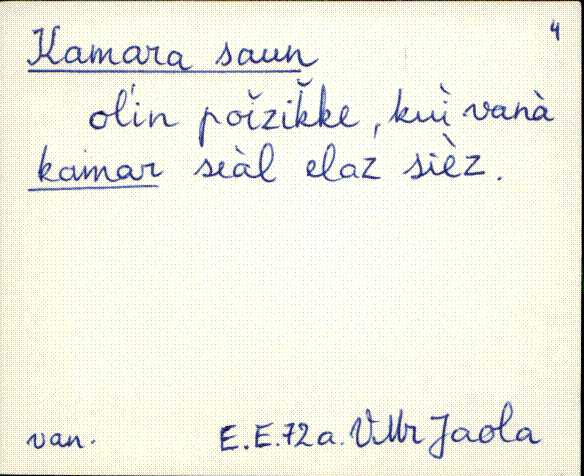 4
Kamara saun
ol'in poĭzik̆ke, kuì vanà
kamar seàl elaz sièz.
van. E.E.72a. VMr Jaola